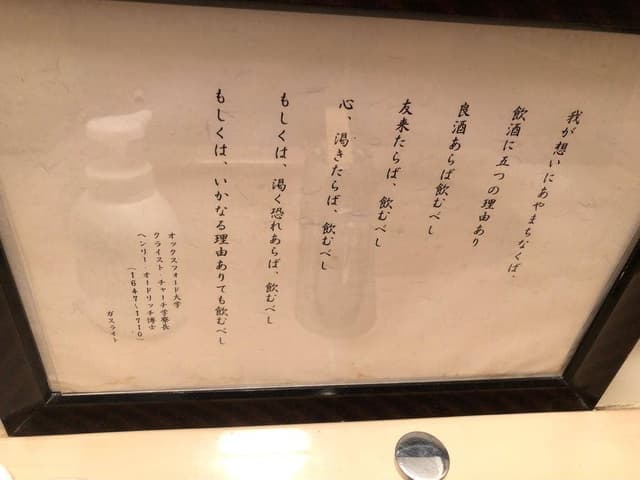 我が想いにあやまちなくば、
飲酒に五つの理由あり
良酒あらば飲むべし
友来たらば、飲むべし
心、渇きたらば、飲むべし
もしくは、渇く恐れあらば、飲むべし
もしくは、いかなる理由ありても飲むべし
オックスフォード大学
クライスト・チャーチ学寮長
ヘンリー・オードリッチ博士
(1647〜1710)
ガスライト